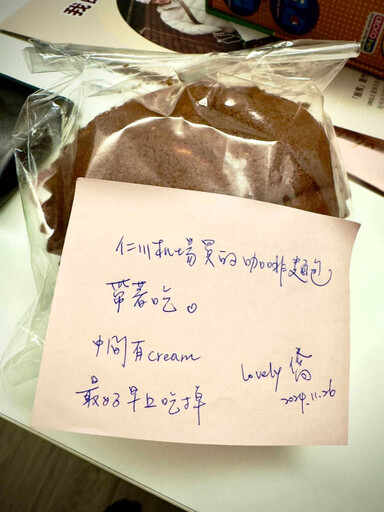 仁川机場買的咖啡麵包
帶著吃。
中間有cream
最好早上吃掉
Lovely 僑
2024.11.26
我